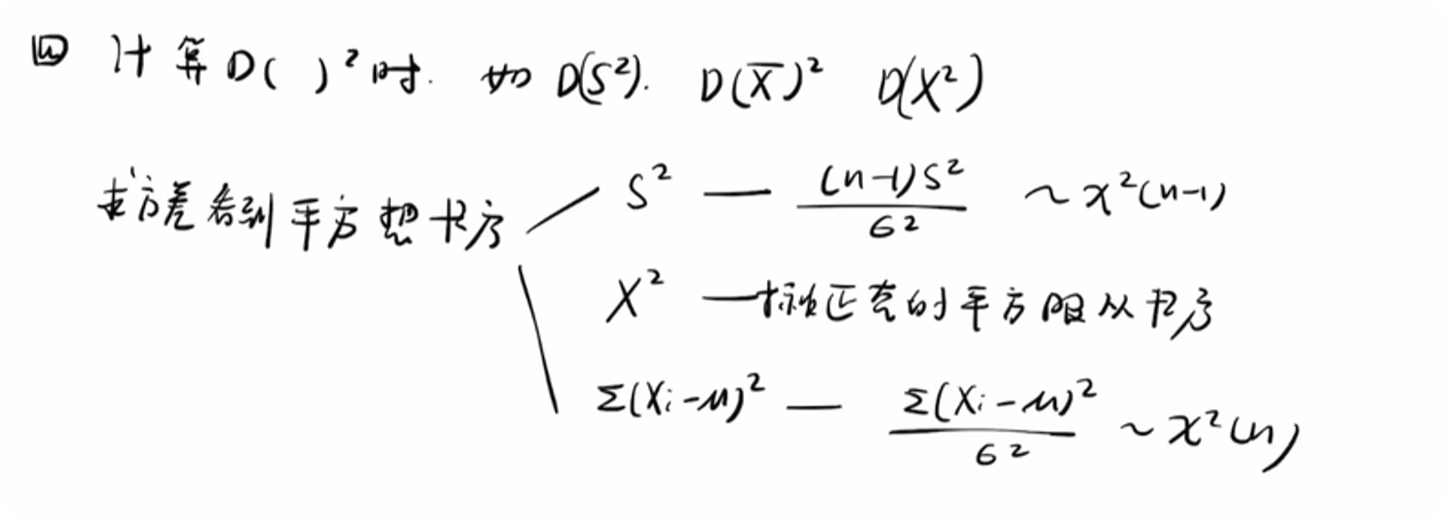 四 计算D( )²时. 如 D(S²). D(X̅)² D(X²)
求方差看到平方想卡方
S² — (n-1)S²/σ² ~ χ²(n-1)
X² — 标准正态的平方服从卡方
Σ(Xᵢ-μ)² — Σ(Xᵢ-μ)²/σ² ~ χ²(n)